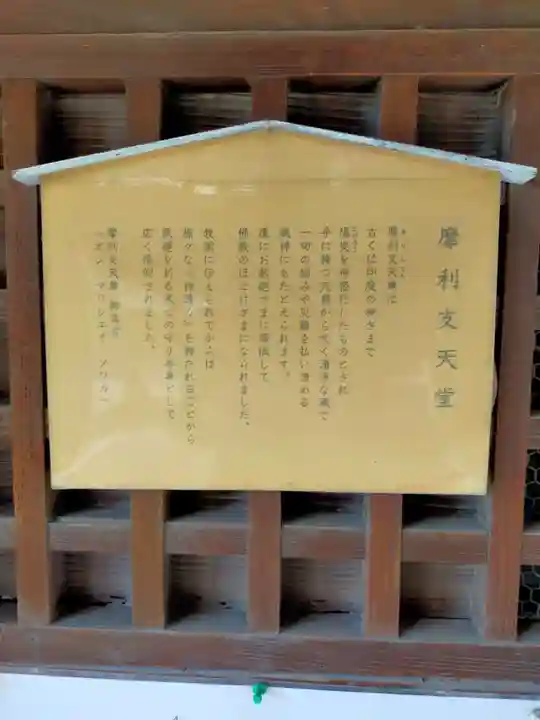 摩利支天堂
摩利支天尊は
古くは印度の神さまで
陽炎を神格化したものとされ
手に持つ天扇から吹く清浄な風で、
一切の悩みや災難を払い清める
風神にもたとえられます。
後にお釈迦さまに帰依して
佛教のほとけさまになられました。
我国に伝えられてからは
様々な「神通力」を持たれることから
民を守り本尊として
広く信仰されました。
摩利支天尊 御真言
「オン マリシエイ ソワカ」